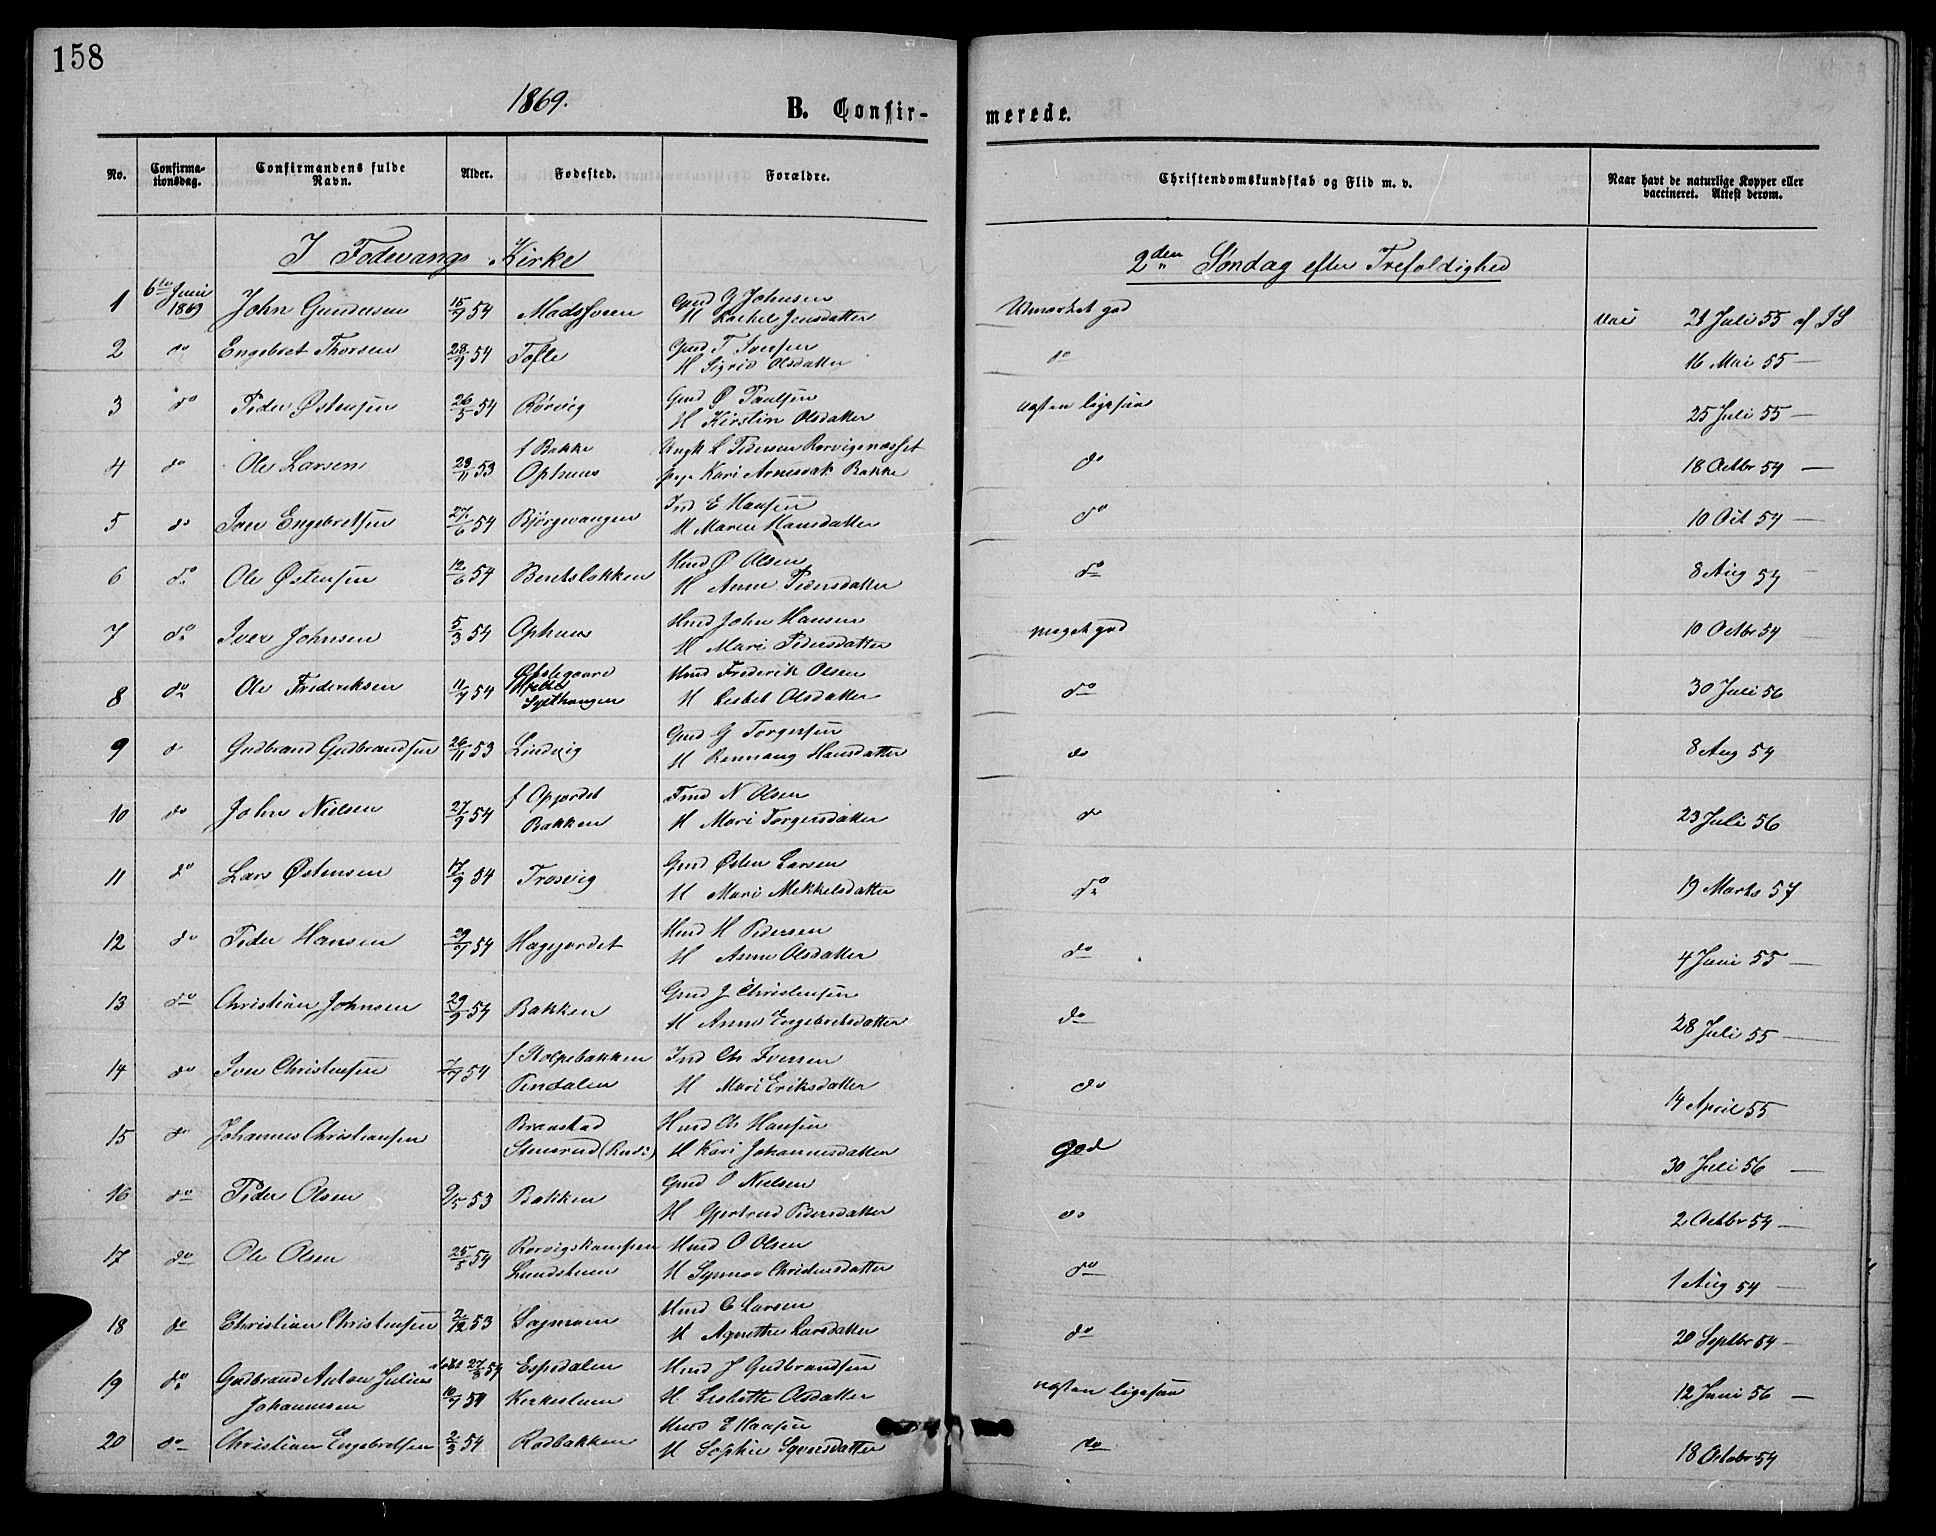 158
1869.
B. Confir-
merede.
No.
Confirma-
tionsdag.
Confirmandens fulde
Navn.
Alder.
Fodested.
Forældre.
Christendomskundskab og Flid m. v.
Naar havt de naturlige Kopper eller
vaccineret. Attest derom.
I Fodevangs Kirke
2den Søndag efter Trefoldighed
1 6te Juni 1869 John Gundersen 15/9 54 Gmd G Johnsen
H Rachel Jensdatter Udmærket god 21 Juli 55 af SS
2 do Engebret Thorsen 28/9 54 Tofle Gmd T Iversen
H Sigrid Olsdatter do 16 Mai 55 —
3 do Peder Østensen 26/5 54 Rörvig Gmd Ø Paulsen
H Kirstin Olsdatter næsten ligesaa 25 Juli 55 —
4 do Ole Larsen 23/11 53 f Bakke
Ophuus Ungk L Pedersen Rorvignæsset
pige Kari Arnesdat Bakke do 18 Octbr 54 —
5 do Iver Engebretsen 27/6 54 Björgevangen Ind E Hansen
H Maren Hansdatter do 10 Oct 54 —
6 do Ole Østensen 12/6 54 Bentsløkken Hmd Ø Olsen
H Anne Pedersdatter do 8 Aug 54 —
7 do Iver Johnsen 5/3 54 Ophuus Hmd John Hansen
H Mari Pedersdatter meget god 10 Octbr 54 —
8 do Ole Frederiksen 11/9 54 Hmd Frederik Olsen
H Lisbet Olsdatter do 30 Juli 56
9 do Gudbrand Gudbrandsen 26/11 53 Lindvig Gmd G Torgersen
H Rennaug Hansdatter do 8 Aug 54
10 do John Nielsen 27/9 54 f Opjordet
Bakken Ind N Olsen
H Mari Torgersdatter do 23 Juli 56
11 do Lars Østensen 17/9 54 Trosvig Gmd Østen Larsen
H Mari Mekkelsdatter do 19 Marts 57
12 do Peder Hansen 29/7 54 Hagejordet Hmd H Pedersen
H Anne Olsdatter do 4 Juni 55 —
13 do Christian Johnsen 29/9 54 Bakken Gmd J Christensen
H Anne Engebretsdatter do 28 Juli 55 —
14 do Iver Christensen 7/7 54 Ind Ch Iversen
H Mari Eriksdatter do 14 April 55
15 do Johannes Christiansen Brænstad
Stensrud Hmd Ch Hansen
H Kari Johannesdatter god 30 Juli 56 —
16 do Peder Olsen 9/5 53 Bakken Gmd O Nielsen
H Gjertrud Pedersdatter do 2 Octbr 54 —
17 do Ole Olsen 25/5 54 Rorvigskampen
Lundstuen Hmd O Olsen
H Synnøv Christensdatter do 1 Aug 54 —
18 do Christian Christensen 2/12 53 Sagmoen Hmd C Larsen
H Agnethe Larsdatter do 20 Septbr 54 —
19 do Gudbrand Anton Julius
Johannesen døbt 27/8 54
10/7 54 Espedalen
Kirkestuen Hmd J Gudbrandsen
H Lisbette Olsdatter næsten ligesaa 12 Juni 56 —
20 do Christian Engebretsen 2/3 54 Rodbakken Hmd E Hansen
H Sophie Svensdatter do 18 Octobr 54